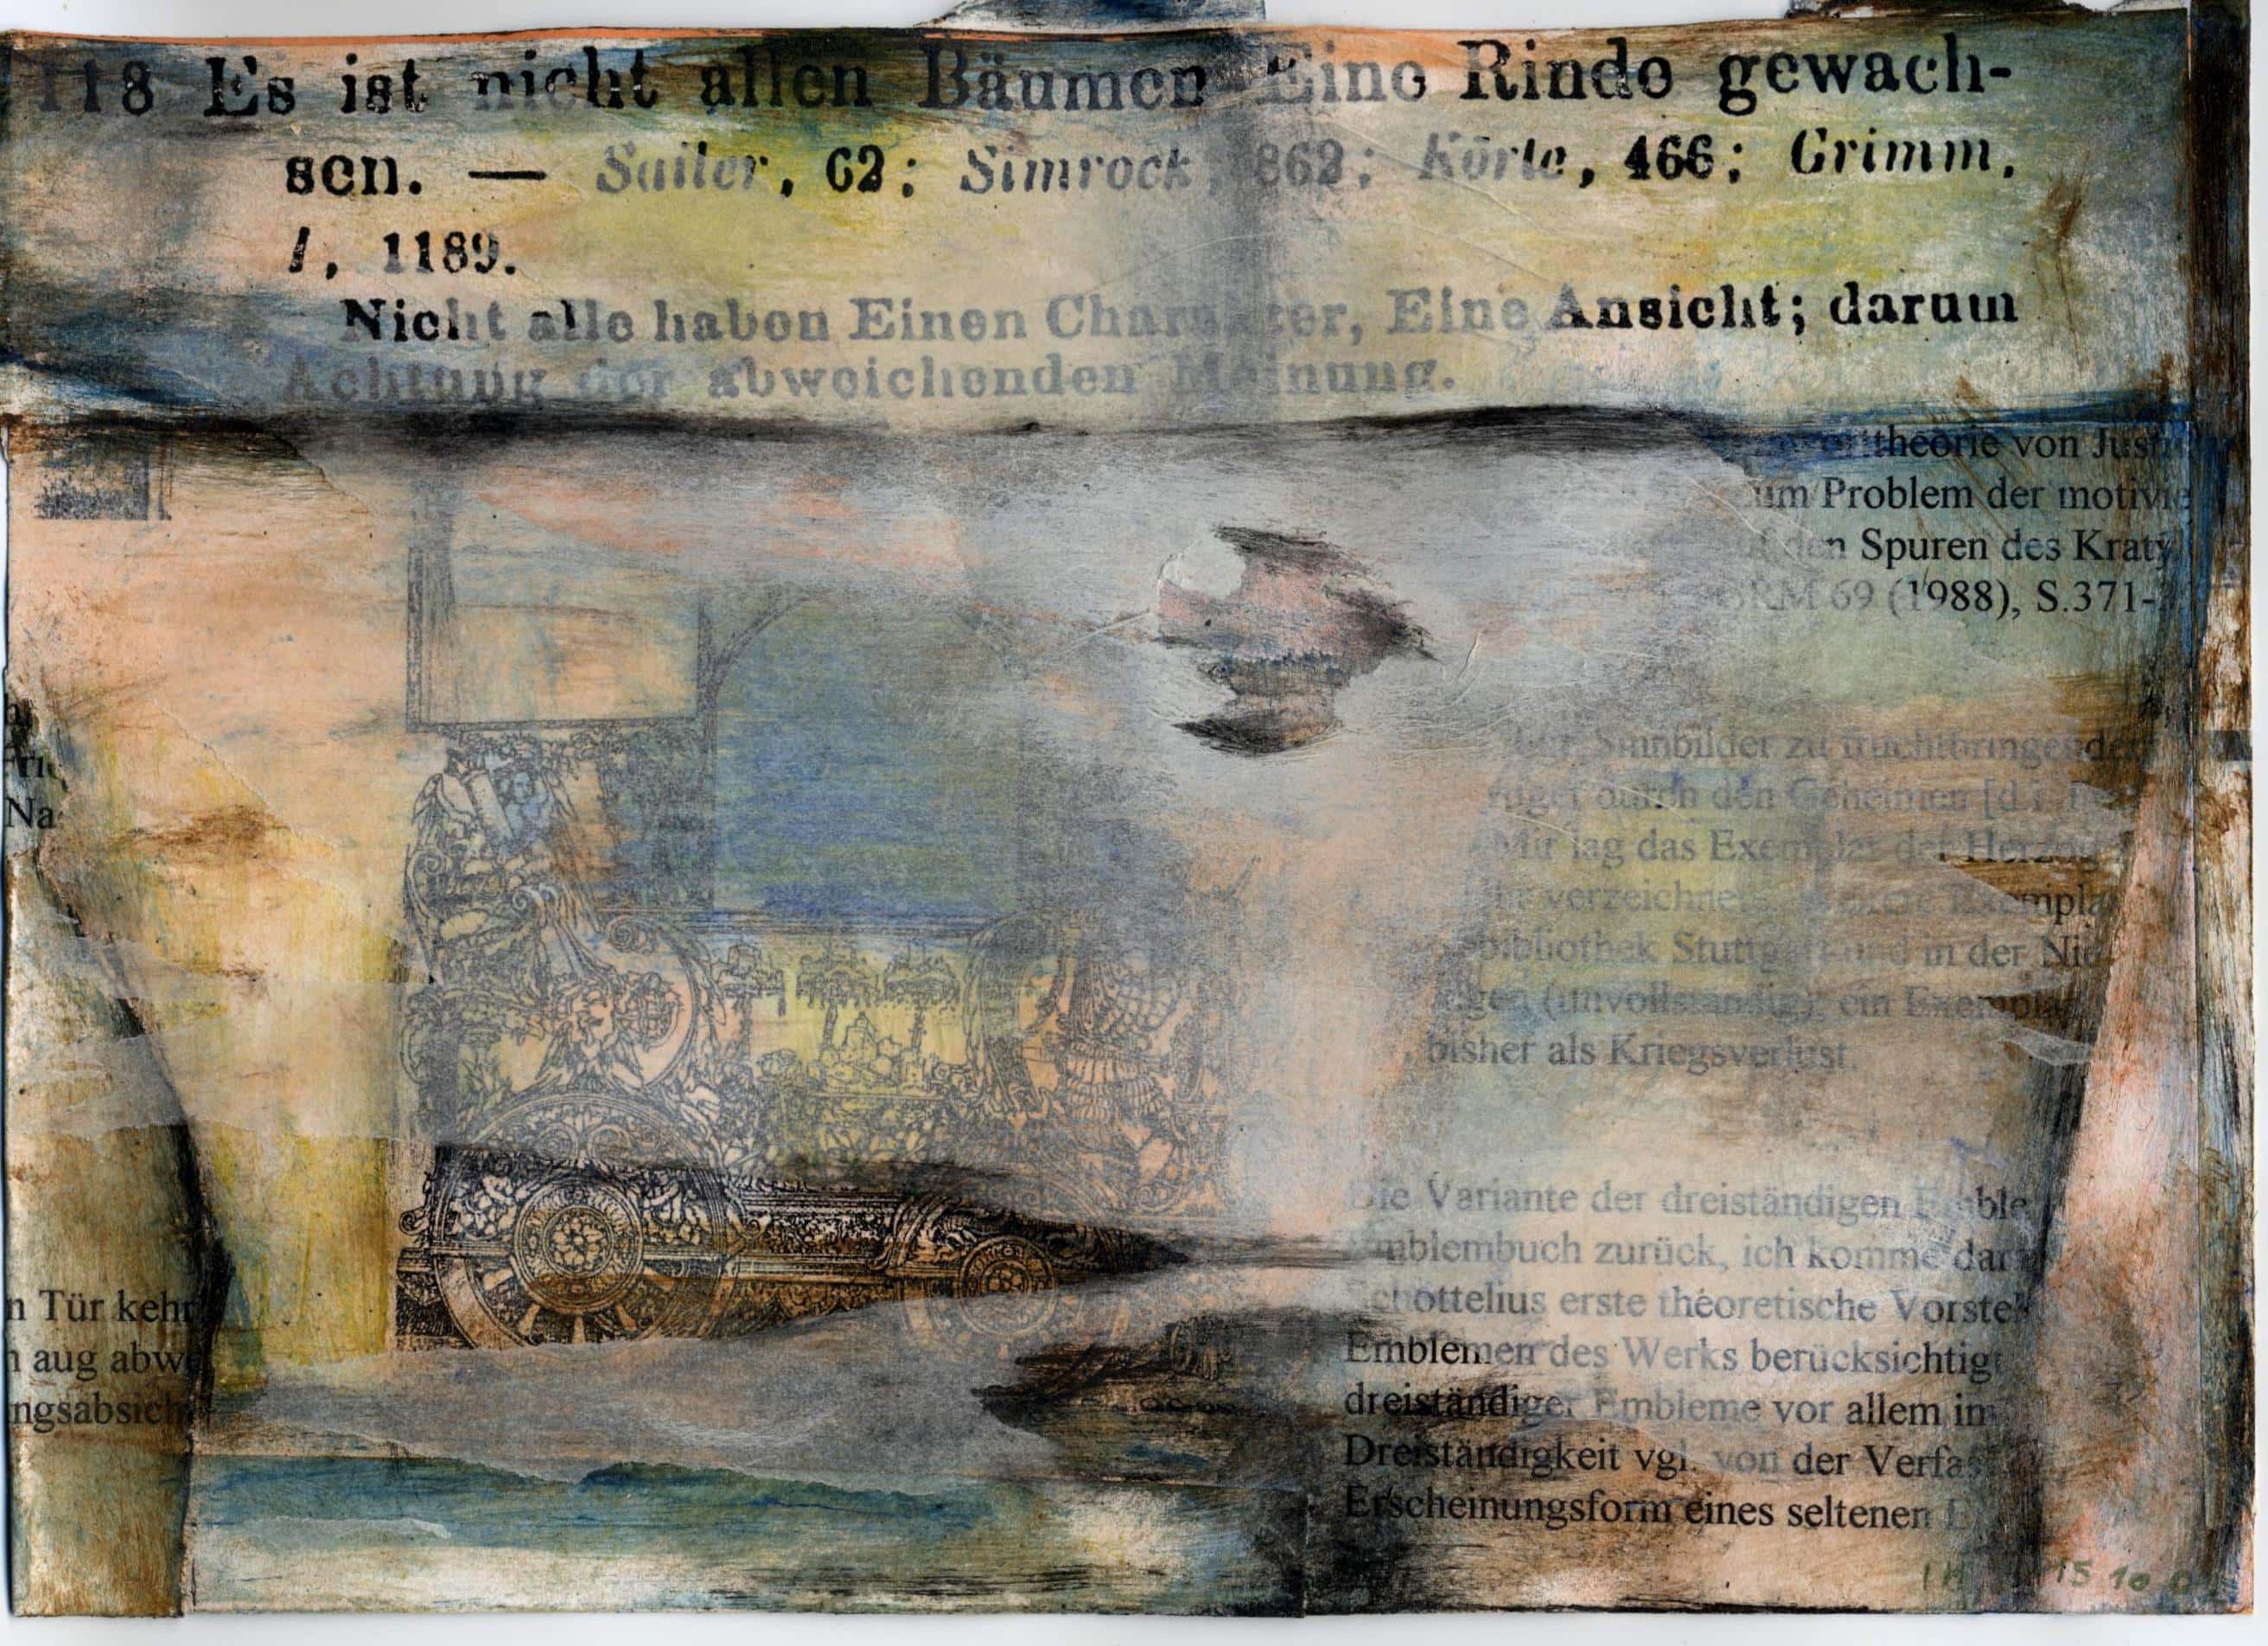 118 Es ist nicht allen Bäumen Eine Rinde gewach-
sen. — Sailer, 62; Simrock, 862; Körte, 466; Grimm,
I, 1189.
Nicht alle haben Einen Charakter, Eine Ansicht; darum
Achtung der abweichenden Meinung.
theorie von Just
um Problem der motivie
den Spuren des Kraty
GRM 69 (1988), S.371-
Sinnbilder zu fruchtbringende
durch den Geheimen [d.i.
Mir lag das Exemplar der Herzog
verzeichnet Exempla
bibliothek Stuttgart und in der Nie
gen (unvollständig), ein Exempla
bisher als Kriegsverlust.
Na
n Tür kehr
n aug abwe
ngsabsich
Die Variante der dreiständigen Emble
mblembuch zurück, ich komme dar
Schottelius erste theoretische Vorstel
Emblemen des Werks berücksichtigt
dreiständiger Embleme vor allem im
Dreiständigkeit vgl. von der Verfas
Erscheinungsform eines seltenen
15 10